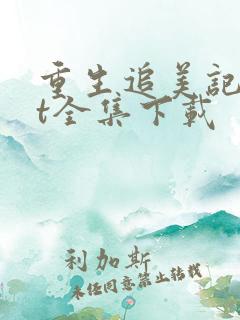 重生追美记
t全集下载
利加斯
未经同意禁止转载